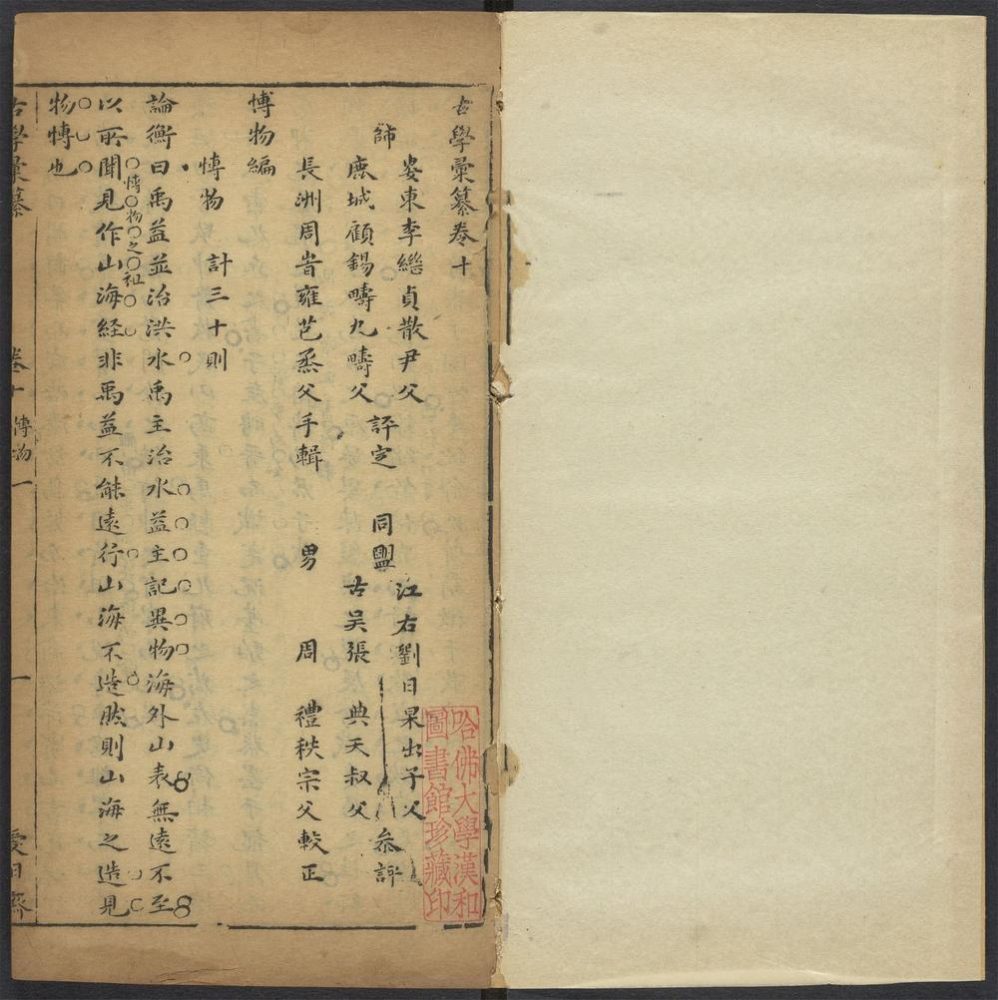 古學彙纂卷十
婁東李繼貞散尹父
師
評定
鹿城顧錫疇九疇父
江右劉日杲出子父
同盟
參評
古吳張典天叔父
長洲周旹雍芑烝父手輯
男周禮秩宗父較正
博物編
博物計三十則
論衡曰禹益並治洪水禹主治水益主記異物海外山表無遠不至
以所聞見作山海経非禹益不能遠行山海不造然則山海之造見
博物之祉
物博也
古學彙纂
卷十
博物一
一
愛日齋
哈佛大學漢和
圖書館珍藏印